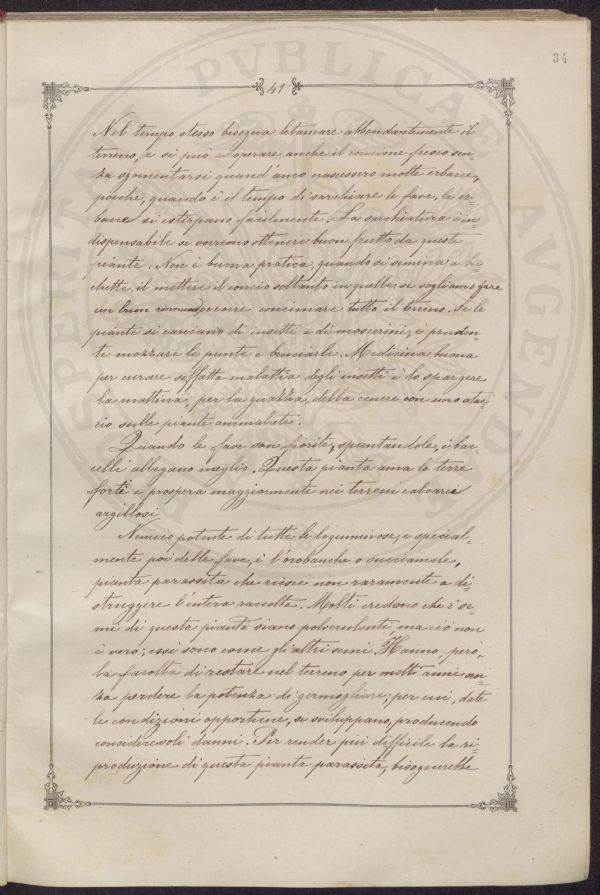 34
41
PVBLICAE
Nel tempo stesso bisogna letamare abbondantemente il
terreno, e si può adoperare anche il concime fresco sen-
za sgomentarsi quand'anco nascessero molte erbacce,
poiché, quando è il tempo di sarchiare le fave, le er-
bacce si estirpano facilmente. La sarchiatura è in-
dispensabile se vorremo ottenere buon frutto da queste
piante. Non è buona pratica, quando si semina a bu-
chette, il mettere il concio soltanto in quelle; se vogliamo fare
un buon rinnuovo occorre concimare tutto il terreno. Se le
piante si caricano di insetti e di moscerini, è pruden-
te mozzare le punte e bruciarle. Medicina buona
per curare siffatta malattia degli insetti è lo spargere
la mattina, per la guazza, della cenere con uno stac-
cio sulle piante ammalate.
Quando le fave son fiorite, spuntandole, i bac-
celli allegano meglio. Questa pianta ama le terre
forti e prospera maggiormente nei terreni calcarei
argillosi
Nemico potente di tutte le leguminose, e special-
mente poi delle fave, è l'orobanche o succiamele,
pianta parassita che riesce non raramente a di-
struggere l'intera raccolta. Molti credono che i se-
mi di questa pianta siano polverulenti, ma ciò non
è vero; essi sono come gli altri semi. Hanno, però,
la facoltà di restare nel terreno per molti anni sen-
za perdere la potenza di germogliare; per cui, date
le condizioni opportune, si sviluppano, producendo
considerevoli danni. Per render più difficile la ri-
produzione di questa pianta parassita, bisognerebbe